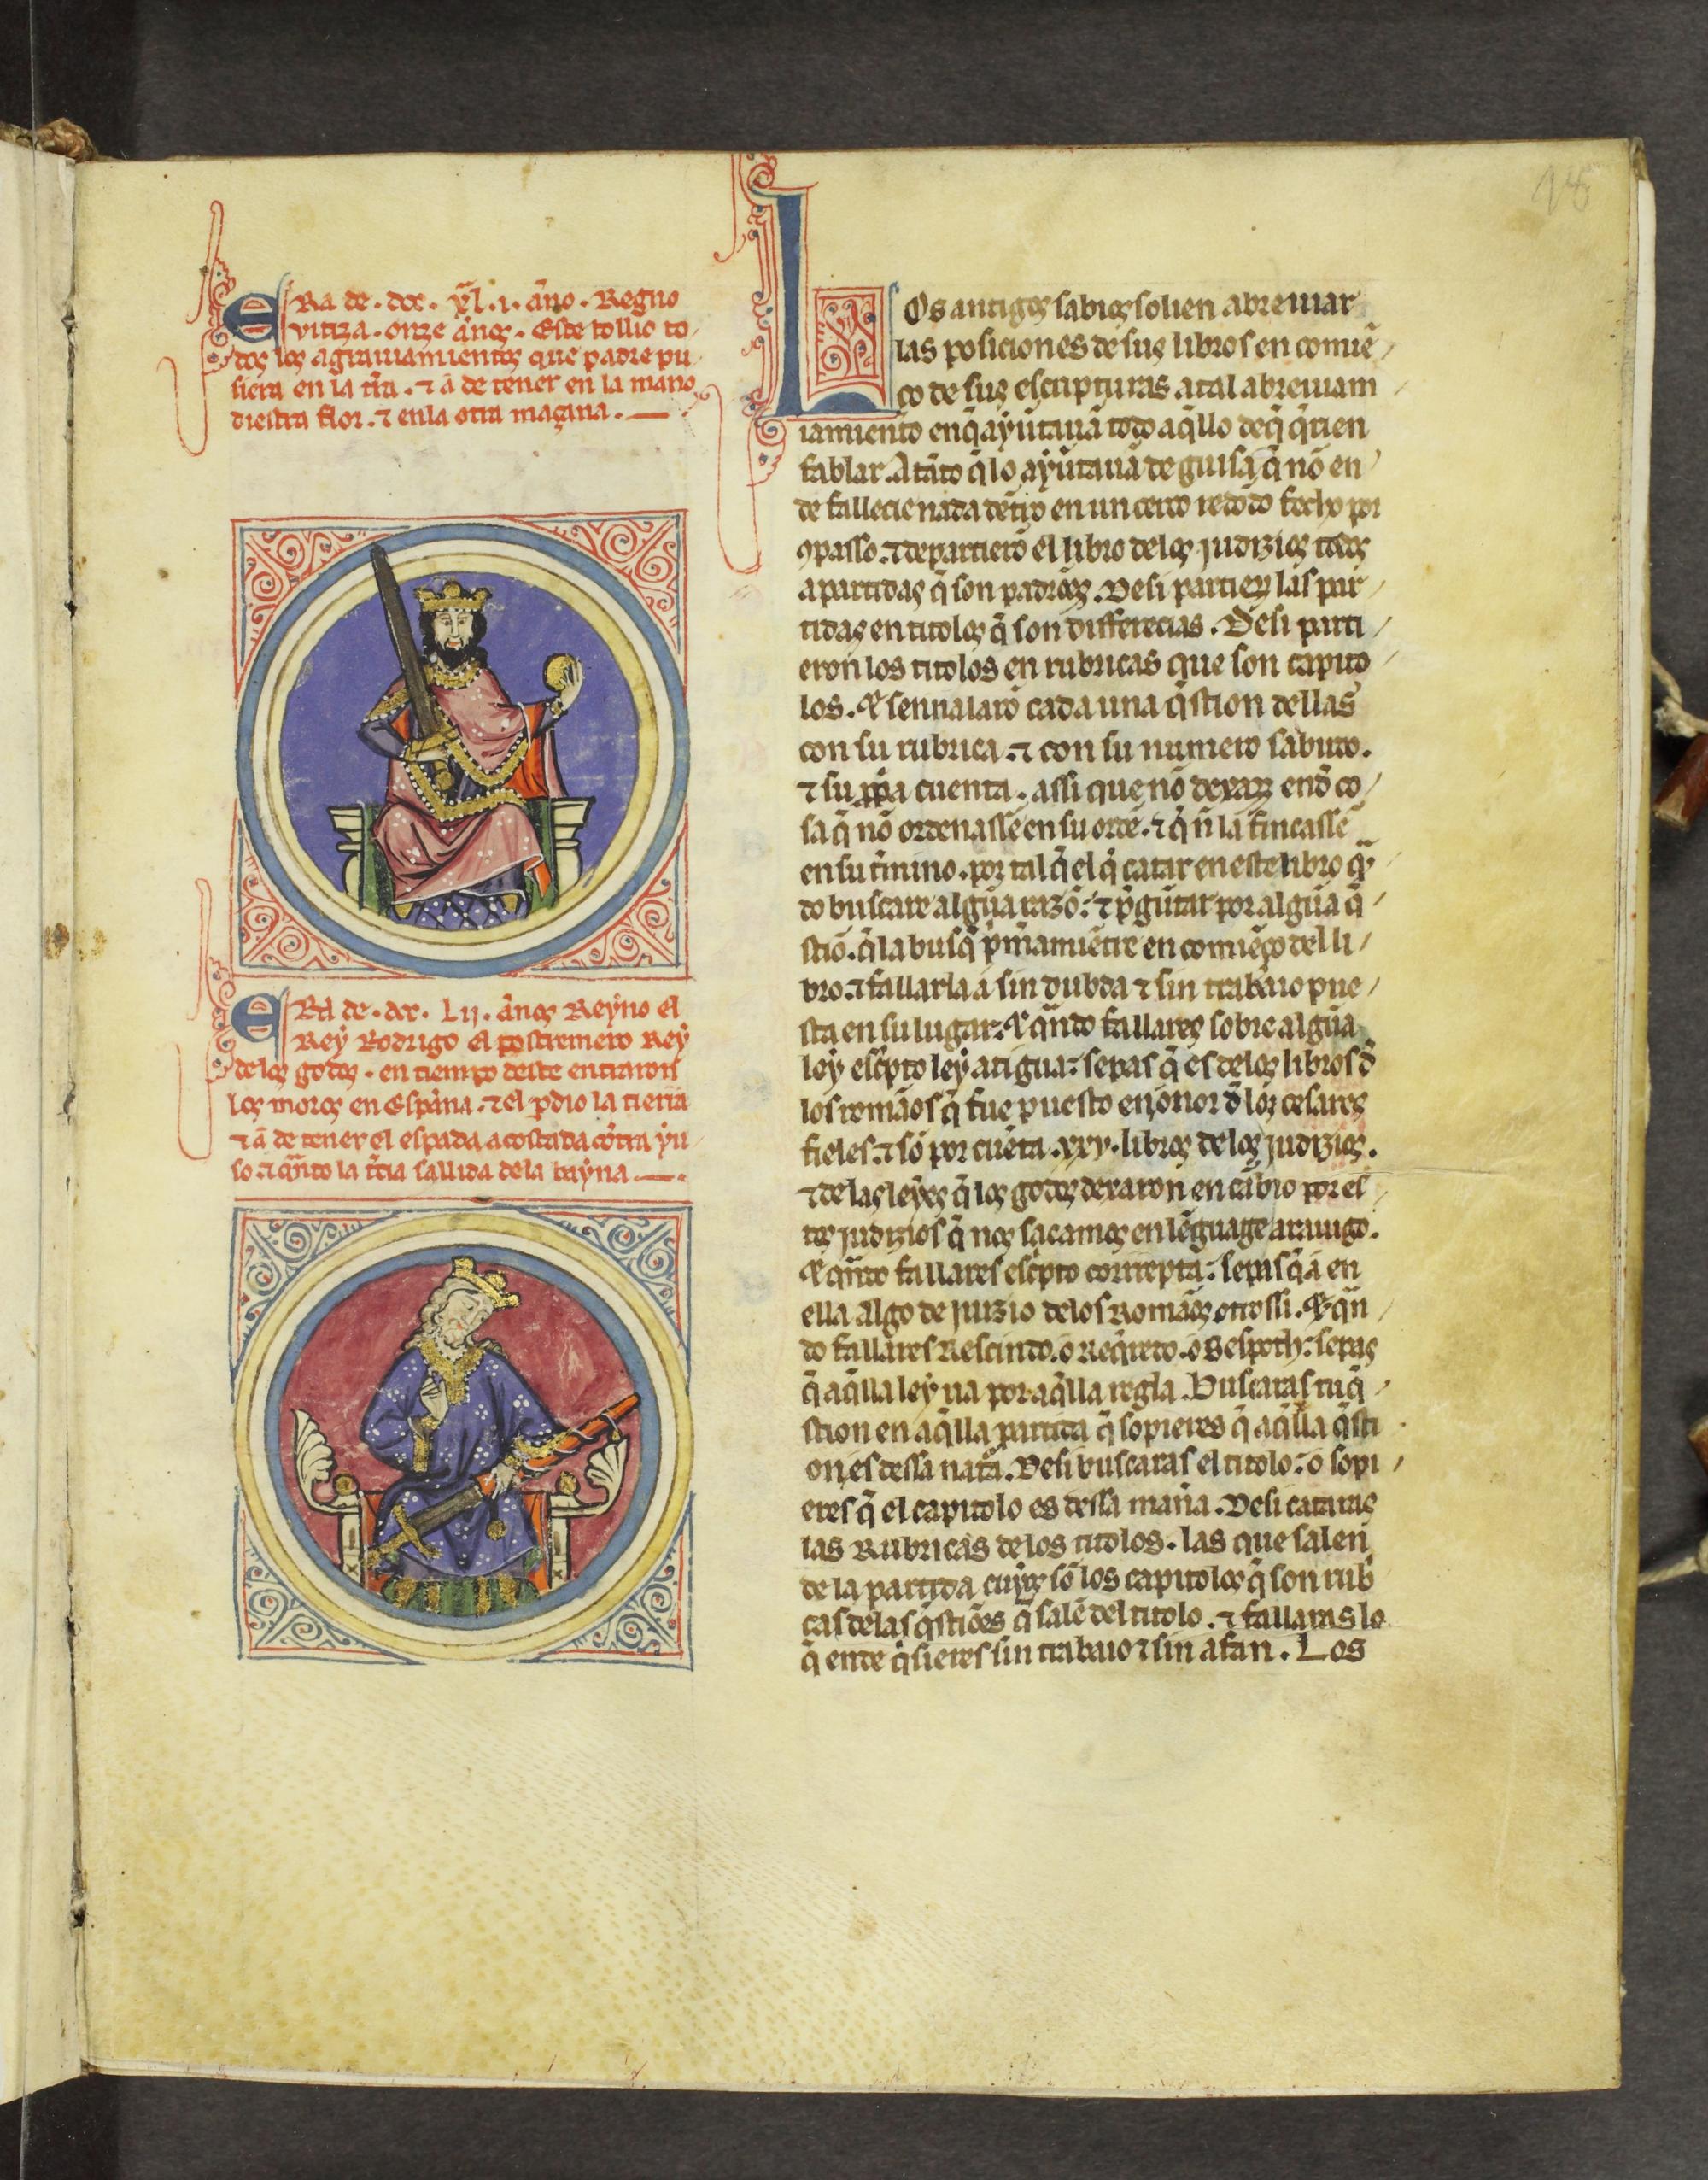 18
ERa de · dcc · xl · i · año · Regno
vitiza · onze años · Este tollio to
dos los agrauiamientos que padre pu
siera en la tr̄ra · ⁊ a de tener en la mano
diestra flor · ⁊ enla otra maçana ·
ERa de · dcc · Lij · años Reyno el
Rey Rodrigo el postremero Rey
delos godos · en tiempo deste entraron
los moros en España · ⁊ el p̄dio la tierra
⁊ a de tener el espada acostada cōtra yu
so · ⁊ q̄nto la t̄cia sallida dela bayna
LOs antigos sabios solien abreuiar
las posiciones de sus libros en comiē
ço de sus escripturas a tal abreuiam
iamiento en q̄ ayūtauā todo aq̄llo deq̄ q̄rien
fablar. A tāto q̄ lo ayūtauā de guisa q̄ nō en
de fallecie nada dētro en un cerco redōdo fecho por
ꝯpasso · ⁊ departierō el libro delos judizios todos
a partidas q̄ son padrōes. Desi partierō las par
tidas en titolos q̄ son differēcias. Desi parti
eron los titolos en rubricas que son capito
los. ⁊ sennalarō cada una q̄stion dellas
con su rubrica · ⁊ con su numero sabuto.
⁊ su ꝓpia cuenta. assi que nō dexarō end̄ co
sa q̄ nō ordenassē en su ordē · ⁊ q̄ n̄ la fincassē
en su t̄mino · por tal q̄ el q̄ catar en este libro q̄n
do buscare algūa razō · ⁊ p̄gūtar por algūa q̄
stiō · q̄ la busq̄ p̄m̄amiētre en comiēço del li
bro · ⁊ fallarla a sin dubda ⁊ sin trabaio pue
sta en su lugar · ⁊ q̄ndo fallares sobre algūa
ley esc̄pto ley ātigua: sepas q̄ es delos libros d̄
los romāos q̄ fue puesto en onor d̄ los cesares
fieles · ⁊ sō por cuēta · xxv · libros delos judizios.
⁊ de las leyes q̄ los godos dexaron en cābio por es
tos judizios q̄ nos sacamos en lēguage arauigo.
⁊ q̄ndo fallares esc̄pto correpta: sepas q̄ a en
ella algo de juizio delos Romāos otrossi. ⁊ q̄n
do fallares Rescindo. o Req̄redo. o Gespoth: sepas
q̄ aq̄lla ley ua por aq̄lla regla. Buscaras tu q̄
stion en aq̄lla partida q̄ sopieres q̄ aq̄lla q̄sti
on es dessa nat̄a. Desi buscaras el titolo: o sopi
eres q̄ el capitolo es dessa man̄a. Desi cataras
las Rubricas delos titolos. las que salen
de la partida cuyos sō los capitolos q̄ son rub
cas delas q̄stiōes q̄ salē del titolo. ⁊ fallaras lo
q̄ ende q̄sieres sin trabaio ⁊ sin afan. Los